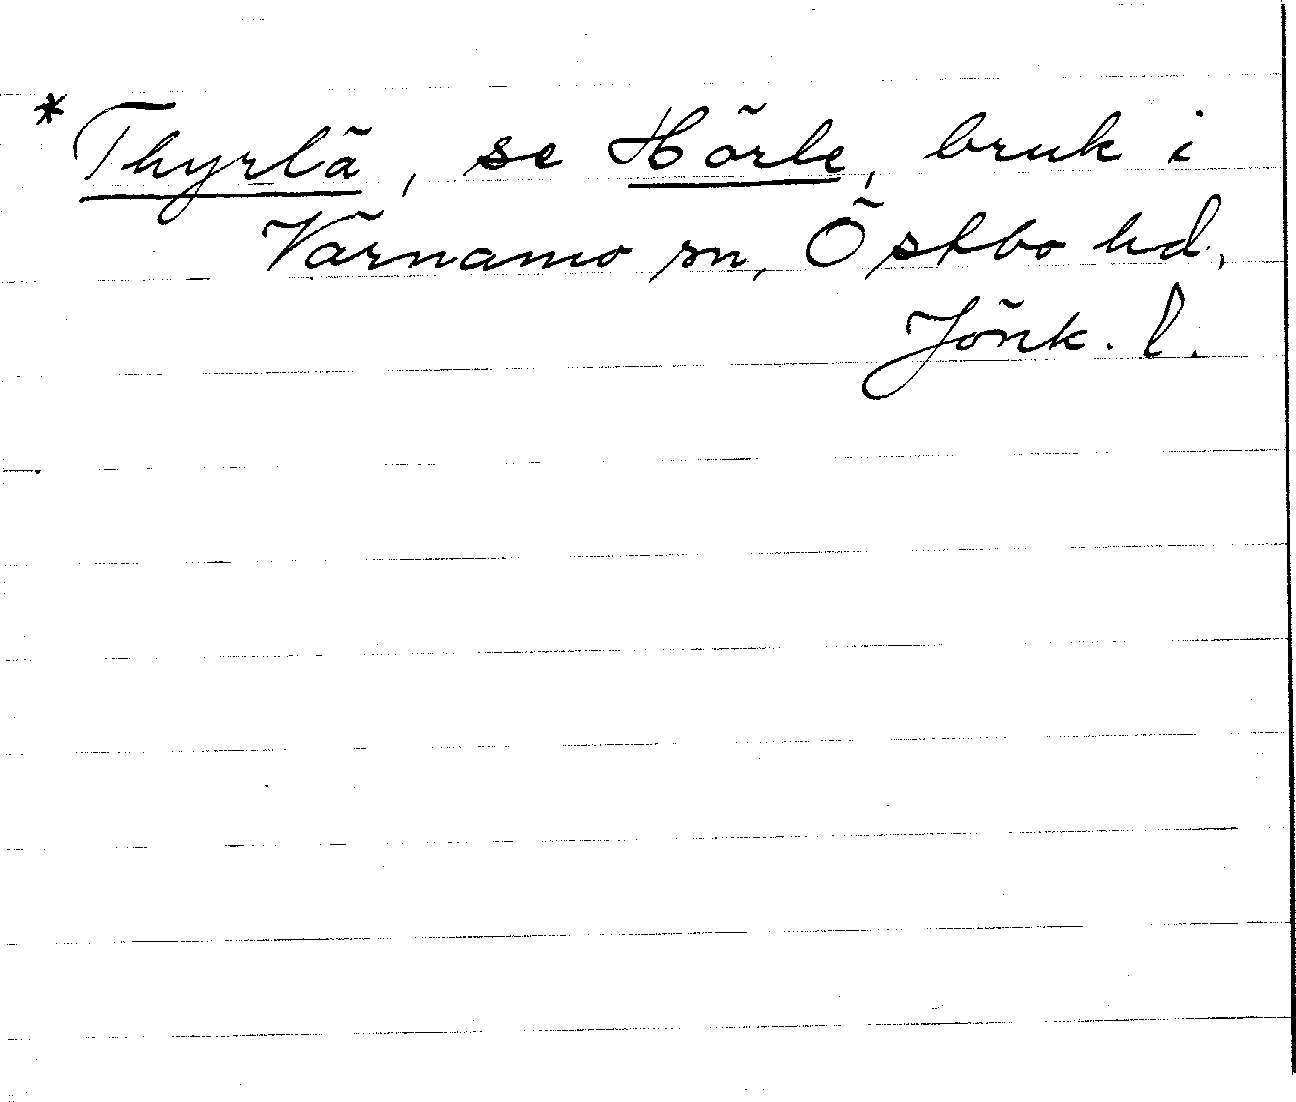 * Thyrlä, se Hörle, bruk i
Värnamo sn, Östbo hd,
Jönk. l.